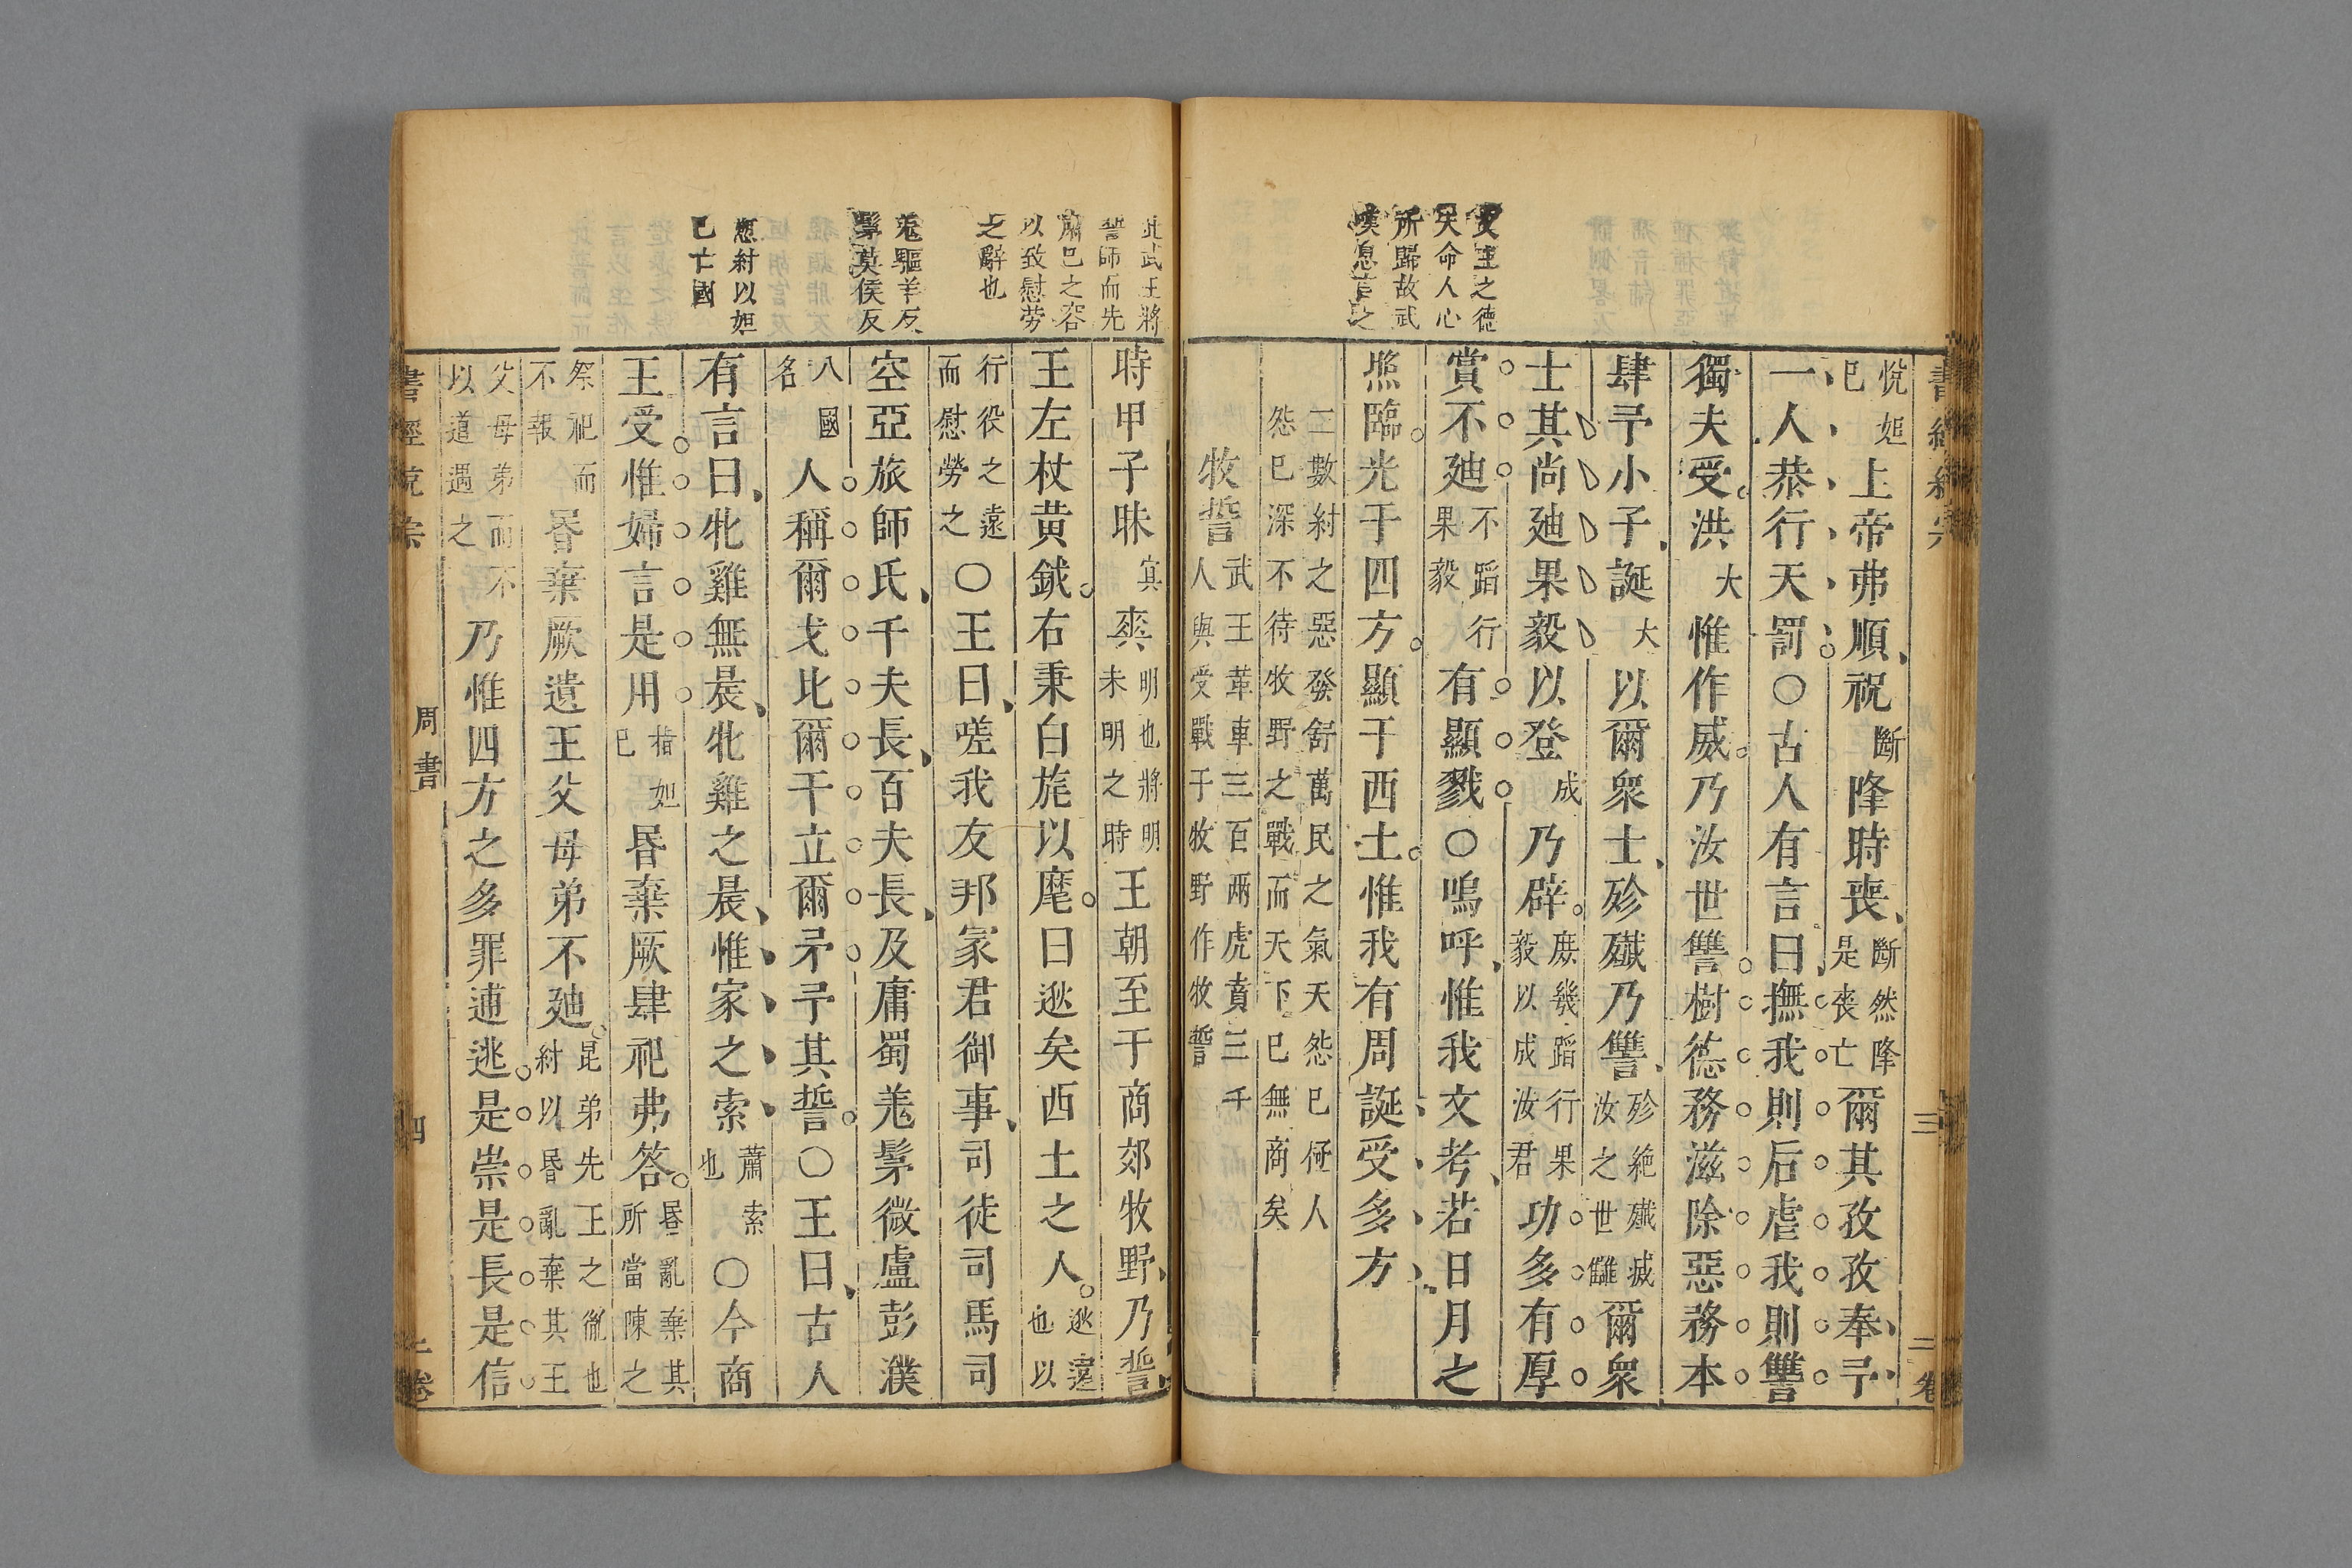 文王之德
天命人心
所歸故武
嘆息言之
悅妲
己
上帝弗順祝斷降時喪斷然降是喪亡爾其孜孜奉予
一人恭行天罰○古人有言曰撫我則后虐我則讐
獨夫受洪大惟作威乃汝世讐樹德務滋除惡務本
肆予小子誕大以爾衆士殄殲乃讐殄絶殲滅汝之世讎爾衆
士其尚廸果毅以登成乃辟庶幾蹈行果毅以成汝君功多有厚
賞不廸不蹈行果毅有顯戮○嗚呼惟我文考若日月之
照臨光于四方顯于西土惟我有周誕受多方
二數紂之惡發舒萬民之氣天怨已極人
怨已深不待牧野之戰而天下已無商矣
牧誓武王革車三百兩虎賁三千人與受戰于牧野作牧誓
此武王將
誓師而先
肅己之容
以致慰勞
之辭也
羗驅羊反
髳莫侯反
愆紂以妲
己亡國
時甲子昧㝠爽明也將明未明之時王朝至于商郊牧野乃誓
王左杖黄鉞右秉白旄以麾曰逖矣西土之人逖遠也以
行役之遠而慰勞之○王曰嗟我友邦冢君御事司徒司馬司
空亞旅師氏千夫長百夫長及庸蜀羗髳微盧彭濮
八國名人稱爾戈比爾干立爾矛予其誓○王曰古人
有言曰牝雞無晨牝雞之晨惟家之索蕭索也○今商
王受惟婦言是用指妲己昬棄厥肆祀弗答昬亂棄其所當陳之
祭祀而不報昬棄厥遺王父母弟不廸昆弟先王之胤也紂以昬亂棄其王
父母弟而不以道遇之乃惟四方之多罪逋逃是崇是長是信
周書
四